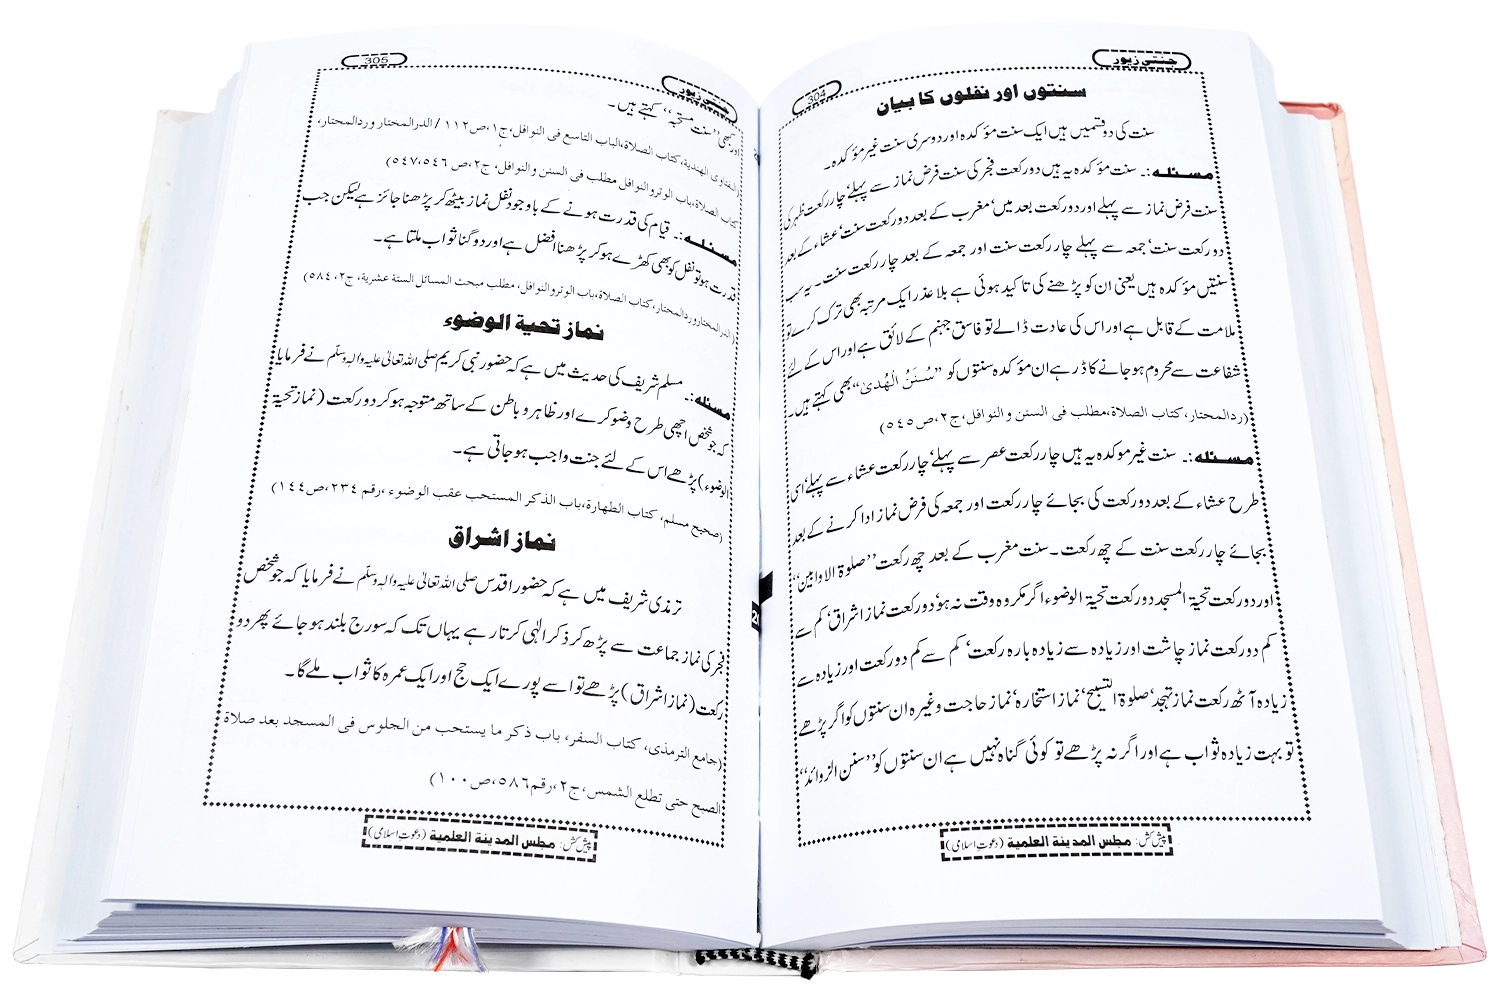 جنتی زیور
304
سنتوں اور نفلوں کا بیان
سنت کی دو قسمیں ہیں ایک سنت مؤکدہ اور دوسری سنت غیر مؤکدہ۔
مسئلہ:۔ سنت مؤکدہ یہ ہیں دو رکعت فجر کی سنت فرض نماز سے پہلے‘ چار رکعت ظہر کی
سنت فرض نماز سے پہلے اور دو رکعت بعد میں‘ مغرب کے بعد دو رکعت سنت‘ عشاء کے بعد
دو رکعت سنت‘ جمعہ سے پہلے چار رکعت سنت اور جمعہ کے بعد چار رکعت سنت۔ یہ سب
سنتیں مؤکدہ ہیں یعنی ان کو پڑھنے کی تاکید ہوئی ہے بلا عذر ایک مرتبہ بھی ترک کرے تو
ملامت کے قابل ہے اور اس کی عادت ڈالے تو فاسق جہنم کے لائق ہے اور اس کے لئے
شفاعت سے محروم ہو جانے کا ڈر ہے ان مؤکدہ سنتوں کو ”سُنَنُ الْھُدیٰ“ بھی کہتے ہیں۔
(ردالمحتار، کتاب الصلاة، مطلب فی السنن و النوافل، ج۲، ص٥٤٥)
مسئلہ:۔ سنت غیر موکدہ یہ ہیں چار رکعت عصر سے پہلے‘ چار رکعت عشاء سے پہلے‘ اسی
طرح عشاء کے بعد دو رکعت کی بجائے چار رکعت اور جمعہ کی فرض نماز ادا کرنے کے بعد
بجائے چار رکعت سنت کے چھ رکعت۔ سنت مغرب کے بعد چھ رکعت ’’صلوۃ الاوابین‘‘
اور دو رکعت تحیۃ المسجد دو رکعت تحیۃ الوضوء اگر مکروہ وقت نہ ہو‘ دو رکعت نماز اشراق‘ کم سے
کم دو رکعت نماز چاشت اور زیادہ سے زیادہ بارہ رکعت‘ کم سے کم دو رکعت اور زیادہ سے
زیادہ آٹھ رکعت نماز تہجد‘ صلوۃ التسبیح‘ نماز استخارہ‘ نماز حاجت وغیرہ ان سنتوں کو اگر پڑھے
تو بہت زیادہ ثواب ہے اور اگر نہ پڑھے تو کوئی گناہ نہیں ہے ان سنتوں کو ’’سنن الزوائد‘‘
پیش کش: مجلس المدینۃ العلمیۃ (دعوت اسلامی)
جنتی زیور
305
اور کبھی ’’سنت مستحبہ‘‘ کہتے ہیں۔
(الفتاوی الهندیة، کتاب الصلاة، الباب التاسع فی النوافل، ج۱، ص۱۱۲ / الدرالمختار وردالمحتار،
کتاب الصلاة، باب الوتر والنوافل مطلب فی السنن والنوافل، ج۲، ص٥٤٦، ٥٤٧)
مسئلہ:۔ قیام کی قدرت ہونے کے باوجود نفل نماز بیٹھ کر پڑھنا جائز ہے لیکن جب
قدرت ہو تو نفل کو بھی کھڑے ہو کر پڑھنا افضل ہے اور دو گنا ثواب ملتا ہے۔
(الدرالمختار و ردالمحتار، کتاب الصلاة، باب الوتر والنوافل، مطلب مبحث المسائل الستة عشریة، ج۲، ٥٨٤)
نماز تحیۃ الوضوء
مسئلہ:۔ مسلم شریف کی حدیث میں ہے کہ حضور نبی کریم صلی اللہ تعالیٰ علیہ والہ وسلّم نے فرمایا
کہ جو شخص اچھی طرح وضو کرے اور ظاہر و باطن کے ساتھ متوجہ ہو کر دو رکعت (نماز تحیۃ
الوضوء) پڑھے اس کے لئے جنت واجب ہو جاتی ہے۔
(صحیح مسلم، کتاب الطهارة، باب الذکر المستحب عقب الوضوء، رقم ۲۳٤، ص١٤٤)
نماز اشراق
ترمذی شریف میں ہے کہ حضور اقدس صلی اللہ تعالیٰ علیہ والہ وسلّم نے فرمایا کہ جو شخص
فجر کی نماز جماعت سے پڑھ کر ذکر الٰہی کرتا رہے یہاں تک کہ سورج بلند ہو جائے پھر دو
رکعت (نماز اشراق) پڑھے تو اسے پورے ایک حج اور ایک عمرہ کا ثواب ملے گا۔
(جامع الترمذی، کتاب السفر، باب ذکر ما یستحب من الجلوس فی المسجد بعد صلاة
الصبح حتی تطلع الشمس، ج۲، رقم٥٨٦، ص۱۰۰)
پیش کش: مجلس المدینۃ العلمیۃ (دعوت اسلامی)